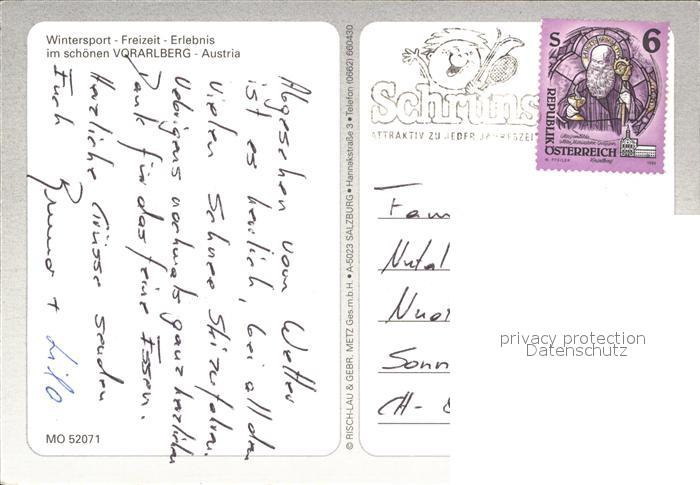 Wintersport - Freizeit - Erlebnis
im schönen VORARLBERG - Austria
Abgesehen vom Wetter
ist es herrlich, bei all dem
vielen Schnee Skizufahren.
Uebrigens nochmals ganz herzlichen
Dank für das feine Essen.
Herzliche Grüsse senden
Euch Bruno + Lilo
MO 52071
© RISCH-LAU & GEBR. METZ Ges.m.b.H. • A-5023 SALZBURG • Hannakstraße 3 • Telefon (0662) 660430
Schruns
ATTRAKTIV ZU JEDER JAHRESZEIT
S 6
REPUBLIK
ÖSTERREICH
Fam
Nuos
Sonn
CH-
privacy protection
Datenschutz